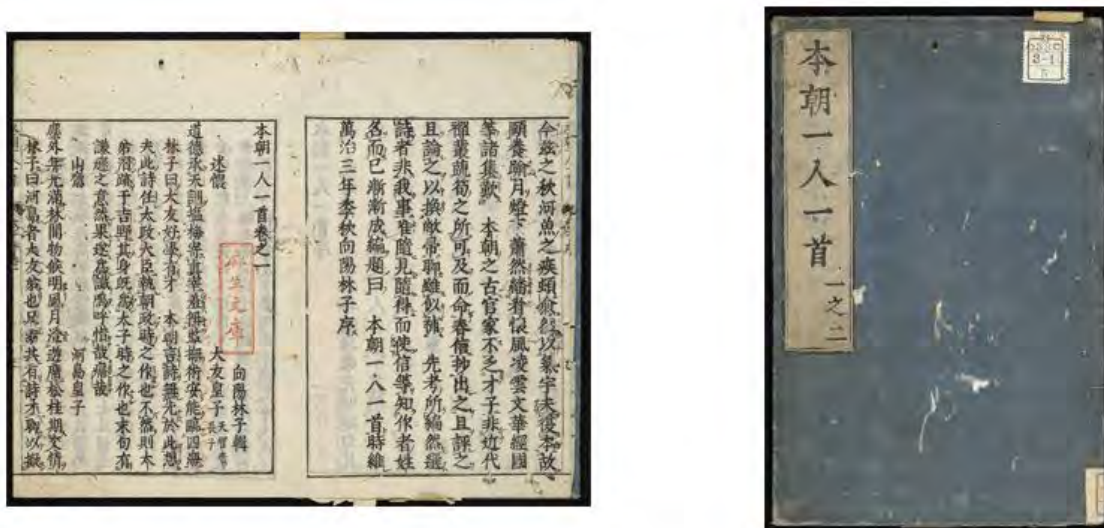 今茲之秋河魚之疾頻愈以氣宇未復本故
頤養踰月燈下蕭然繙懷風凌雲文華經國
等諸集歎 本朝之古官家不乏才子非近代
禪叢蔬筍之所可及而命春信抄出之且評之
且論之以換敝帚聊雖似擬 先考所編然選
詩者非我事唯隨見隨得而使信等知作者姓
名而已漸漸成編題曰 本朝一人一首時維
萬治三年季秋向陽林子序
本朝一人一首卷之一
向陽林子輯
述懷 大友皇子 天智帝長子
道德承天訓塩梅寄真宰羞無監撫術安能臨四海
林子曰大友好學有才 本朝言詩無先於此想
夫此詩任太政大臣執朝政時之作也不然則大
弟潛蹤于吉野其身既為太子時之作也末句有
謙遜之意然果遂為讖嗚呼惜哉痛哉
山齋 河島皇子
塵外年光滿林間物候明風月澄遊席松桂期交情
林子曰河島者大友弟也兄弟共有詩才聊以擬
麻生文庫
本朝一人一首 一之二